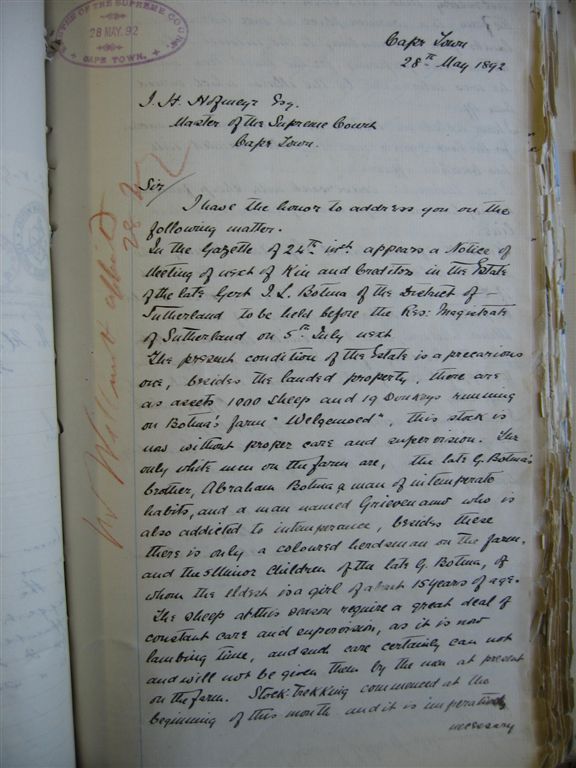 OF THE SUPREME CO
28 MAY. 92
CAPE TOWN.
Cape Town
28th May 1892
J. H. Hofmeyr Esq.
Master of the Supreme Court
Cape Town.
Sir/
I have the honor to address you on the
following matter.
In the Gazette of 24th inst. appears a Notice of
Meeting of next of Kin and Creditors in the Estate
of the late Gert J. L. Botma of the District of –
Sutherland to be held before the Res: Magistrate
of Sutherland on 5th July next
The present condition of the Estate is a precarious
one, besides the landed property, there are
as assets 1000 Sheep and 19 Donkeys running
on Botma's farm "Welgemoed", this stock is
now without proper care and supervision. The
only white men on the farm are, the late G. Botma's
brother, Abraham Botma, a man of intemperate
habits, and a man named who is
also addicted to intemperance, besides these
there is only a coloured herdsman on the farm,
and the 5 Minor Children of the late G. Botma, of
whom the eldest is a girl of about 15 years of age.
The sheep at this season require a great deal of
constant care and supervision, as it is now
lambing time, and such care certainly can not
and will not be given them by the men at present
on the farm. Stock Trekking commenced at the
beginning of this month and it is imperatively
necessary